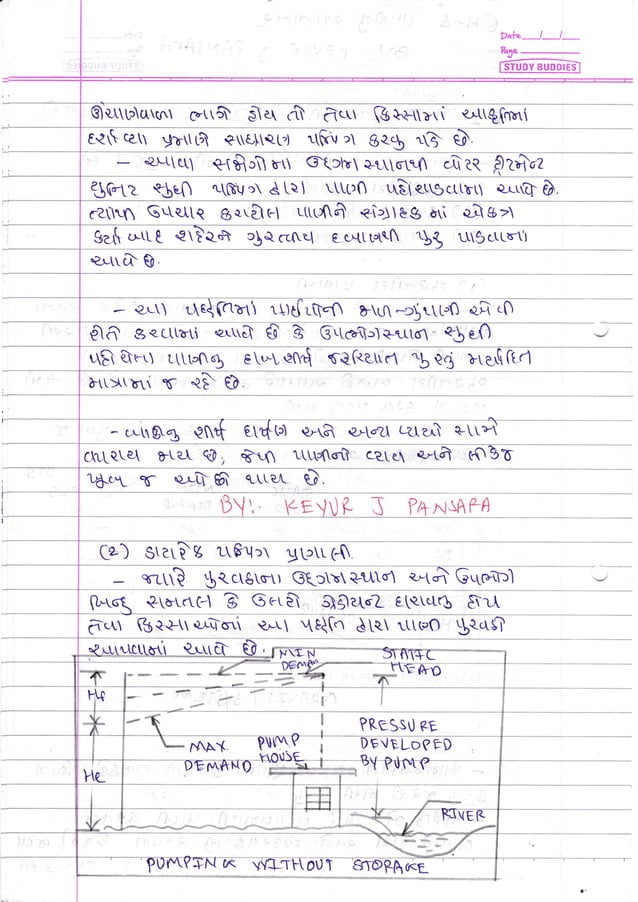 Date __/__/__
Page
STUDY BUDDIES
ઊંચાણવાળા ભાગે હોય તો તેવા કિસ્સામાં આકૃતિમાં
દર્શાવ્યા પ્રમાણે સાધારણ પમ્પિંગ કરવુ પડે છે.
- આવા સંજોગોમા ઉદ્દગમસ્થાનથી વોટર ટ્રીટમેન્ટ
યુનિટ સુધી પમ્પિગ દ્વારા પાણી પહોચાડવામા આવે છે.
ત્યાંથી ઉપચાર કરાયેલ પાણીને સંગ્રાહક માં એકત્ર
કર્યા બાદ શહેરને ગુરુત્વીય દબાણથી પુરુ પાડવામાં
આવે છે.
- આ પધ્ધતિમાં પાઈપોની મળ-ગુંથાણી એવી
રીતે કરવામાં આવે છે કે ઉપભોગસ્થાન સુધી
પહોચેલા પાણીનુ દાબ શીર્ષ જરૂરિયાત પુરતું મર્યાદિત
માત્રામાં જ રહે છે.
- બાકીનુ શીર્ષ ઘર્ષણ અને અન્ય વ્યયો સામે
વપરાય જાય છે, જેથી પાણીનો વ્યય અને લીકેજ
ખુબ જ ઓછી થાય છે.
BY:- KEYUR J PANSARA
(૨) ડાયરેક્ટ પમ્પિગ પ્રણાલી.
- જ્યારે પુરવઠાના ઉદ્દગમસ્થાન અને ઉપભોગ
બિન્દુ સમતલ કે ઉલટો ગ્રેડીયન્ટ ધરાવતુ હોય
તેવા કિસ્સાઓમાં આ પધ્ધતિ દ્વારા પાણી પુરવઠો
આપવામાં આવે છે.
MIN DEMAN
STATIC HEAD
Hf
MAX. DEMAND
PUMP HOUSE
PRESSURE DEVELOPED BY PUMP
He
RIVER
PUMPING WITHOUT STORAGE